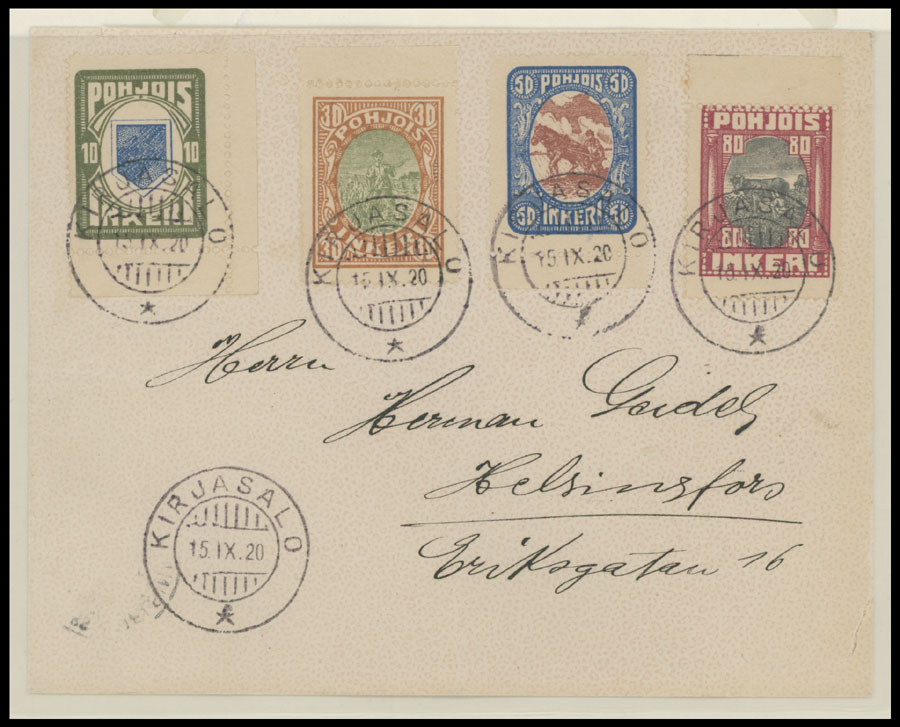 POHJOIS
10 10
30 30
POHJOIS
50 POHJOIS 50
50 INKERI 50
POHJOIS
80 80
80 80
INKERI
KIRJASALO
15.IX.20
KIRJASALO
15.IX.20
KIRJASALO
15.IX.20
KIRJASALO
15.IX.20
Herrn
Herman
Helsingfors
Eriksgatan 16
KIRJASALO
15.IX.20